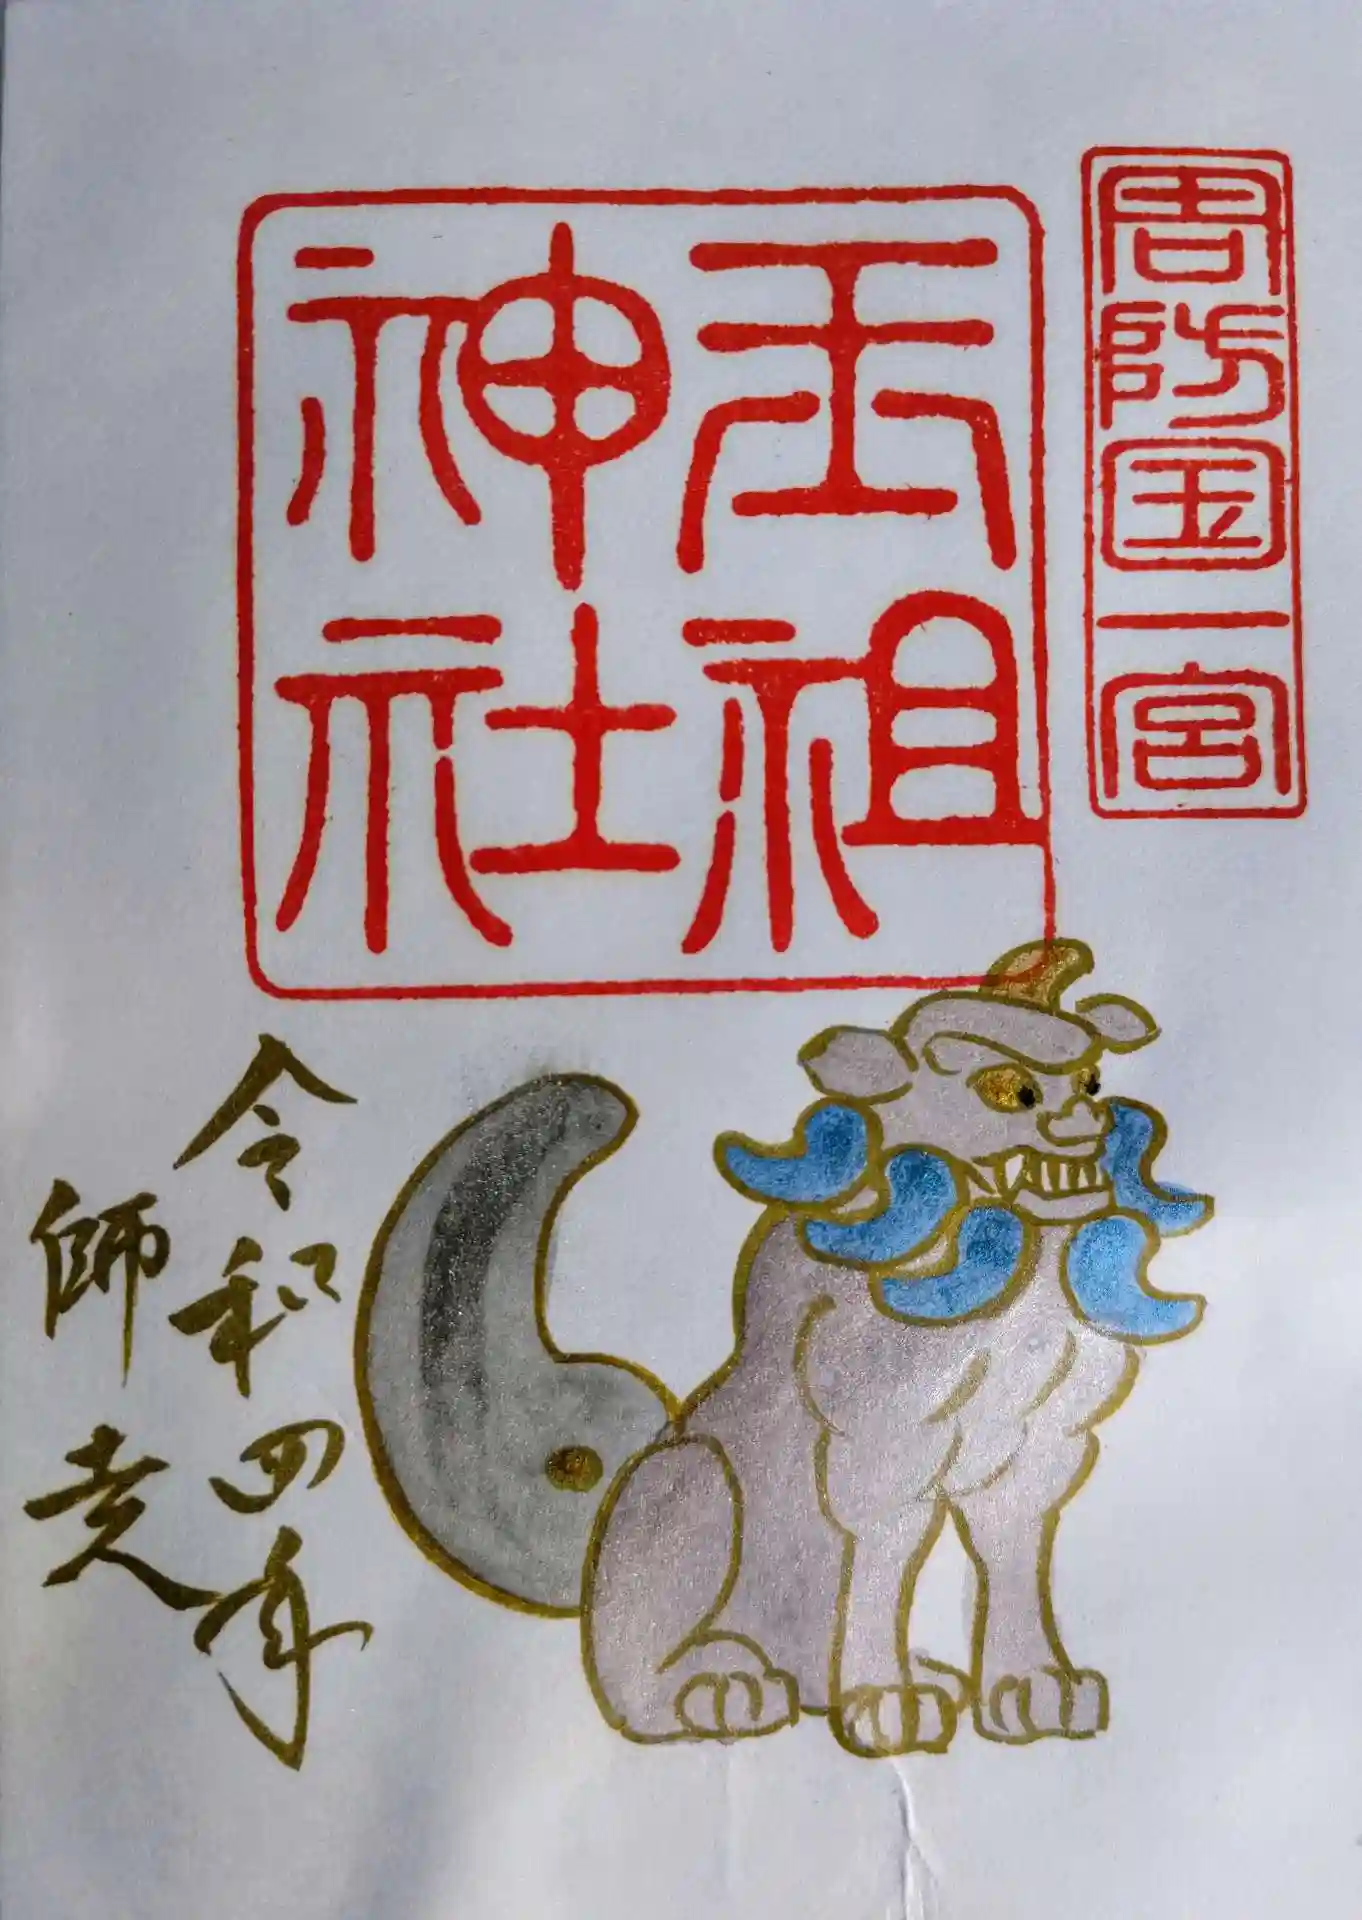 周防国一宮
玉祖神社
令和四年
師走